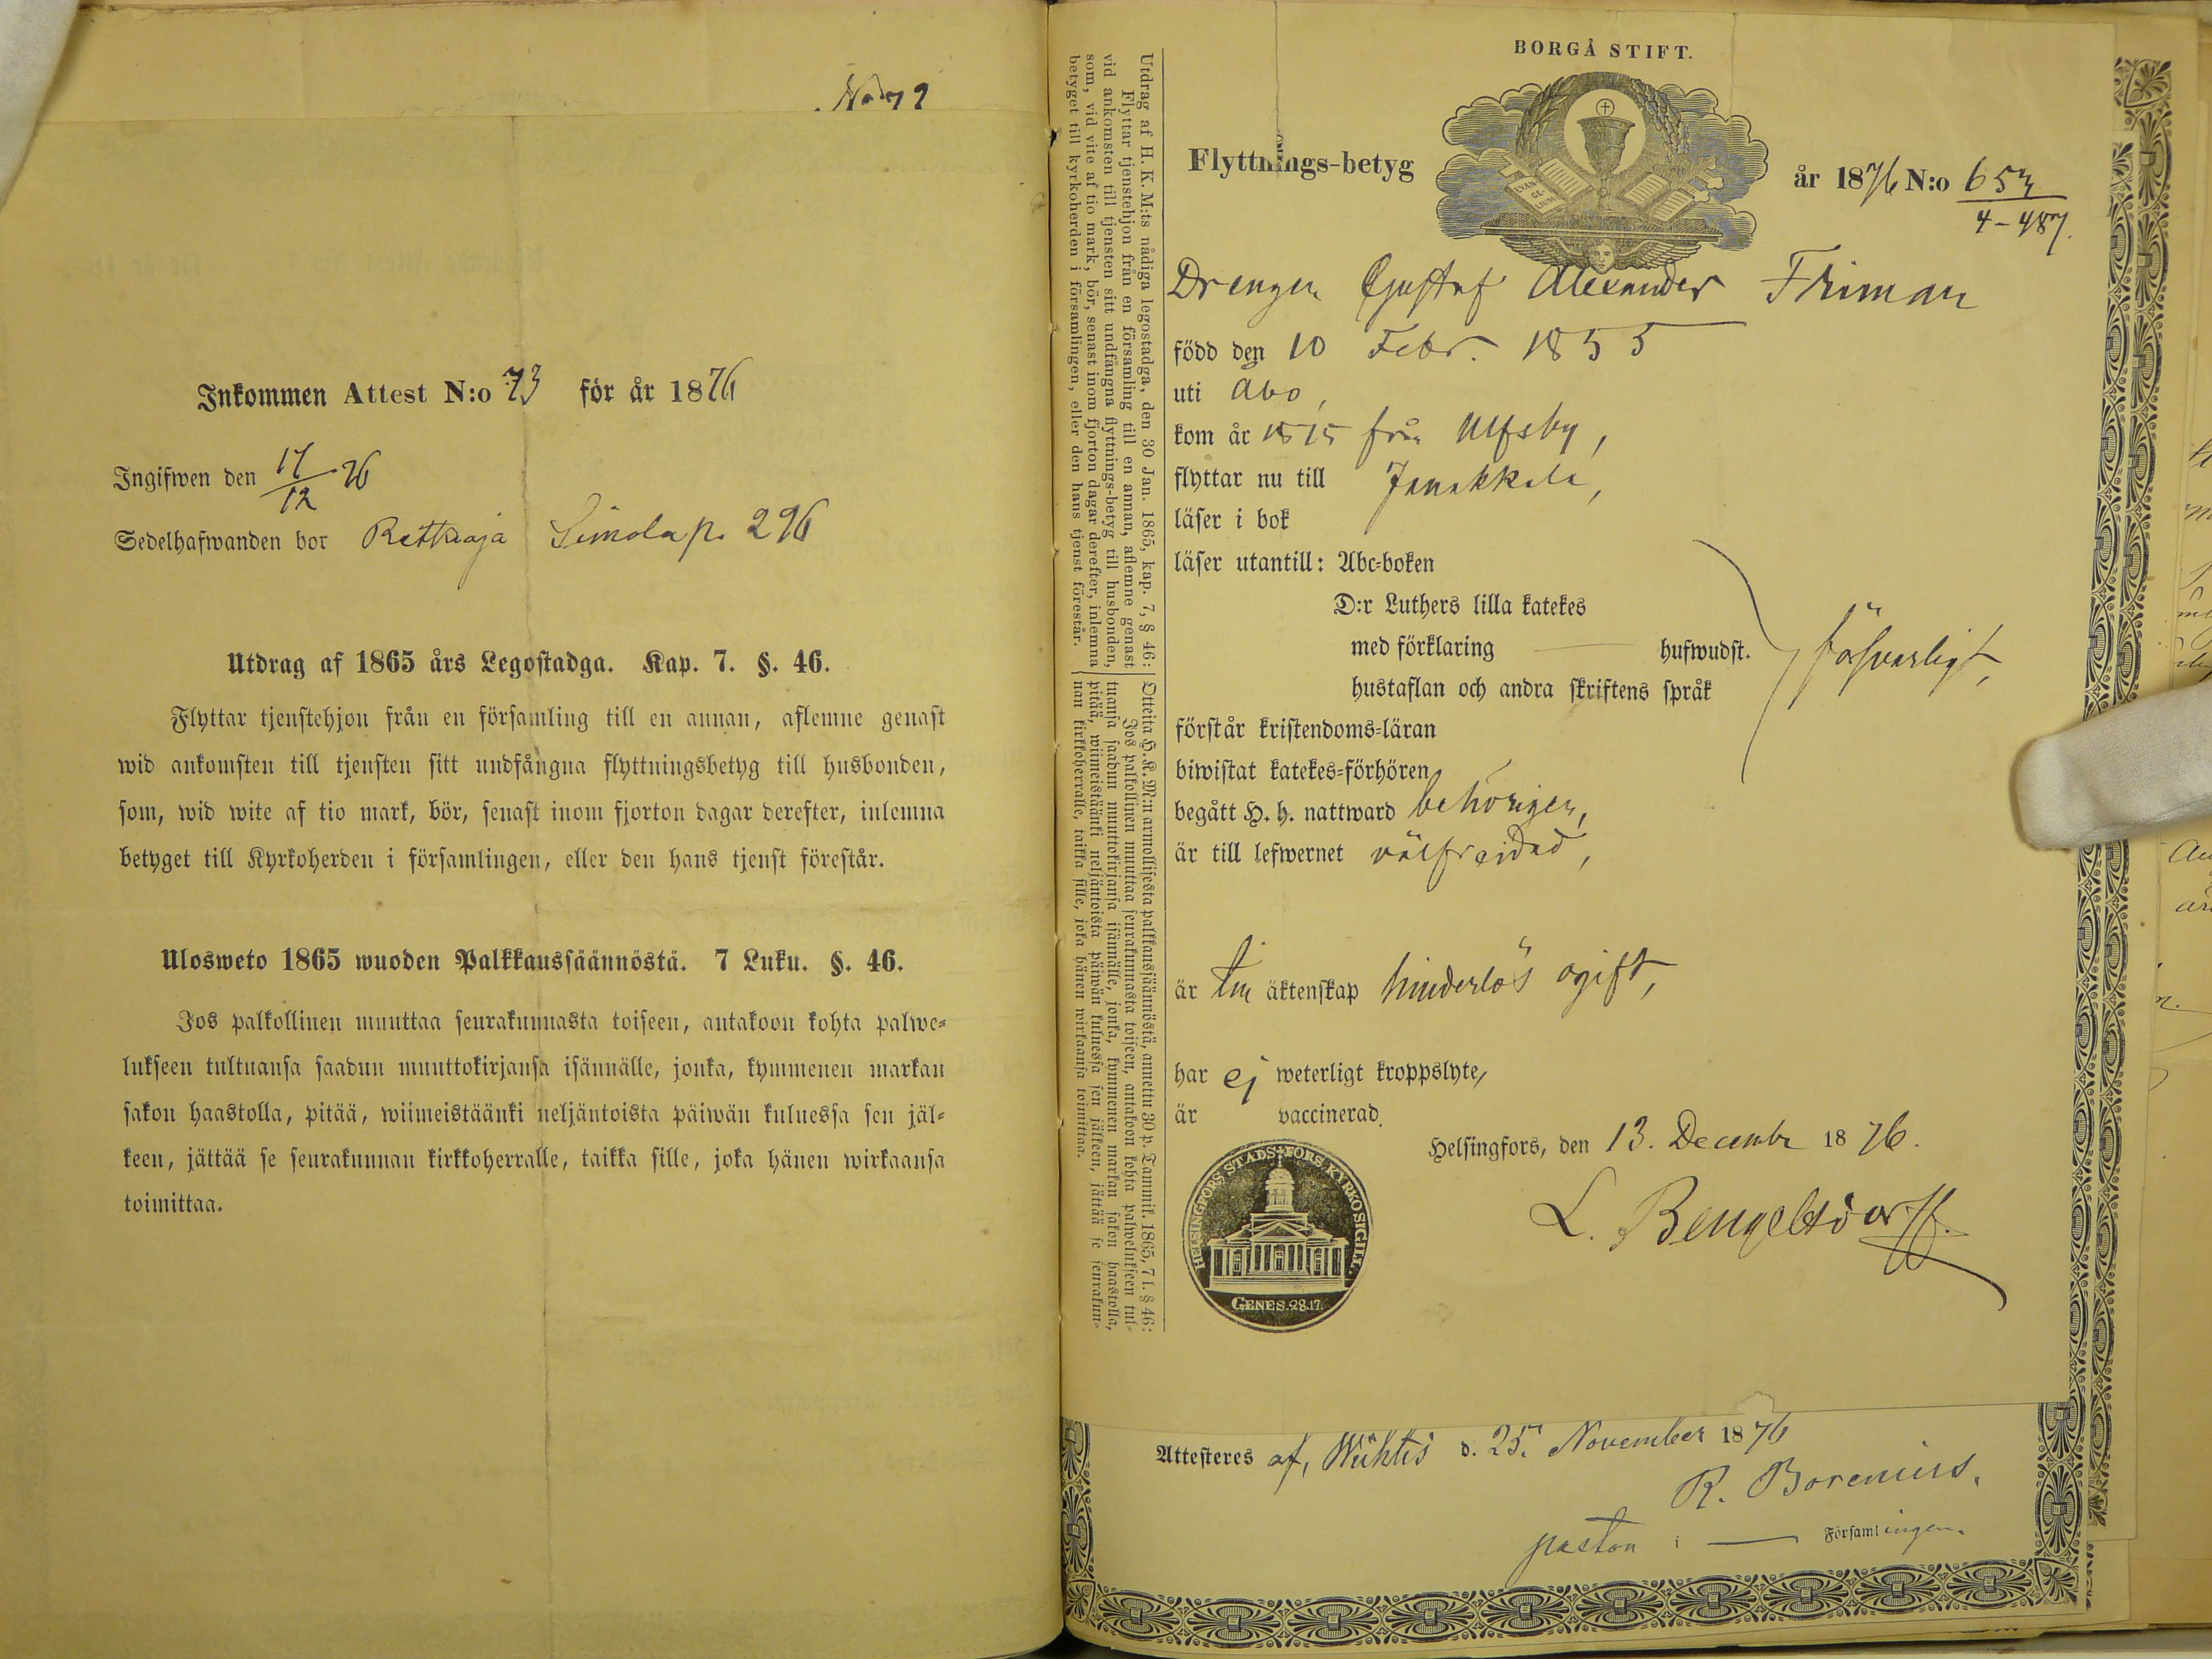 Inkommen Attest N:o 73 för år 1876
Ingifwen den 17/12 76
Sedelhafwanden bor Rettkaja Simola p. 296
Utdrag af 1865 års Legostadga. Kap. 7. §. 46.
Flyttar tjenstehjon från en församling till en annan, aflemne genast
wid ankomsten till tjensten sitt undfångna flyttningsbetyg till husbonden,
som, wid wite af tio mark, bör, senast inom fjorton dagar derefter, inlemna
betyget till Kyrkoherden i församlingen, eller den hans tjenst förestår.
Ulosweto 1865 wuoden Palkkaussäännöstä. 7 Luku. §. 46.
Jos palkollinen muuttaa seurakunnasta toiseen, antakoon kohta palwe-
lukseen tultuansa saadun muuttokirjansa isännälle, jonka, kymmenen markan
sakon haastolla, pitää, wiimeistäänki neljäntoista päiwän kuluessa sen jäl-
keen, jättää se seurakunnan kirkkoherralle, taikka sille, joka hänen wirkaansa
toimittaa.
Utdrag af H. K. M:ts nådiga legostadga, den 30 Jan. 1865, kap. 7, § 46:
Flyttar tjenstehjon från en församling till en annan, aflemne genast
vid ankomsten till tjensten sitt undfångna flyttnings-betyg till husbonden,
som, vid vite af tio mark, bör, senast inom fjorton dagar derefter, inlemna
betyget till kyrkoherden i församlingen, eller den hans tjenst förestår.
Otteita H. K. M:n armollisesta palkkaussäännöstä, annettu 30 p. Tammik. 1865, 7 l. § 46:
Jos palkollinen muuttaa seurakunnasta toiseen, antakoon kohta palwelukseen tul-
tuansa saadun muuttokirjansa isännälle, jonka, kymmenen markan sakon haastolla,
pitää, wiimeistäänki neljäntoista päiwän kuluessa sen jälkeen, jättää se seurakun-
nan kirkkoherralle, taikka sille, joka hänen wirkaansa toimittaa.
BORGÅ STIFT.
EVAN-
GE-
LIUM
Flyttnings-betyg
år 1876 N:o 653
4-487.
Drengen Gustaf Alexander Friman
född den 10 Febr. 1855
uti Åbo,
kom år 1875 från Ulfsby,
flyttar nu till Janakkala,
läser i bok
läser utantill: Abc-boken
D:r Luthers lilla katekes
med förklaring — hufwudst.
försvarligt,
hustaflan och andra skriftens språk
förstår kristendoms-läran
biwistat katekes-förhören
begått H. h. nattward behörigen,
är till lefwernet välfrejdad,
är till äktenskap hinderlös ogift,
har ej weterligt kroppslyte,
är vaccinerad.
Helsingfors, den 13. Decembr 1876.
L. Bengelsdorff.
HELSINGFORS STADS-FÖRS. KYRKOSIGILL.
GENES. 28.17.
Attesteres af, Wichtis d. 25. November 1876
R. Borenius.
pastor i — Församlingen.